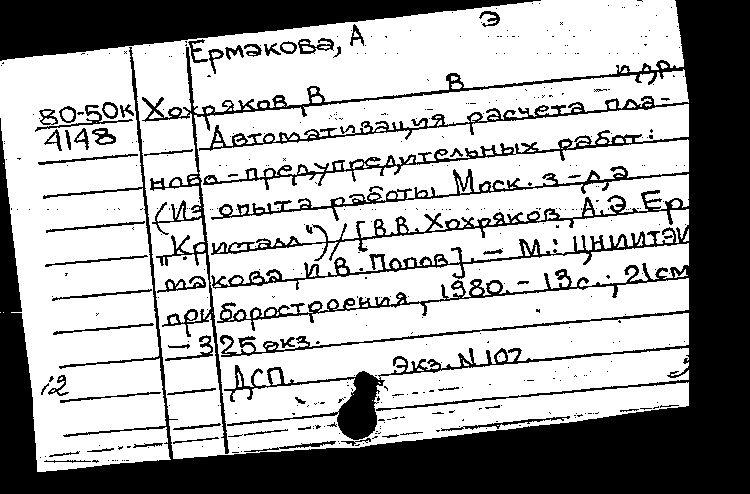 Ермакова, А Э
80-50к Хохряков, В В и др.
4148 Автоматизация расчета пла-
ново-предупредительных работ:
(Из опыта работы Моск. з-да
"Кристалл")/[В.В. Хохряков, А.Э. Ер
макова, И.В. Попов]. — М.: ЦНИИТЭИ
приборостроения, 1980. - 13с.; 21см
— 325 экз.
12 ДСП. Экз. N 107